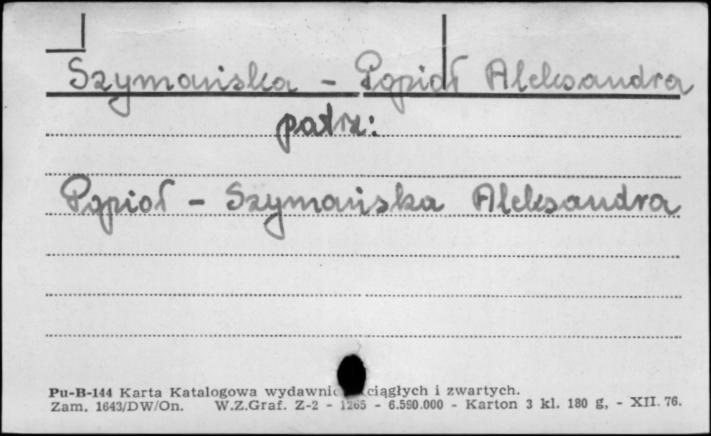 Szymańska - Popioł Aleksandra
patrz:
Popioł - Szymańska Aleksandra
Pu-B-144 Karta Katalogowa wydawnic ciągłych i zwartych.
Zam. 1643/DW/On. W.Z.Graf. Z-2 - 1265 - 6.590.000 - Karton 3 kl. 180 g, - XII. 76.